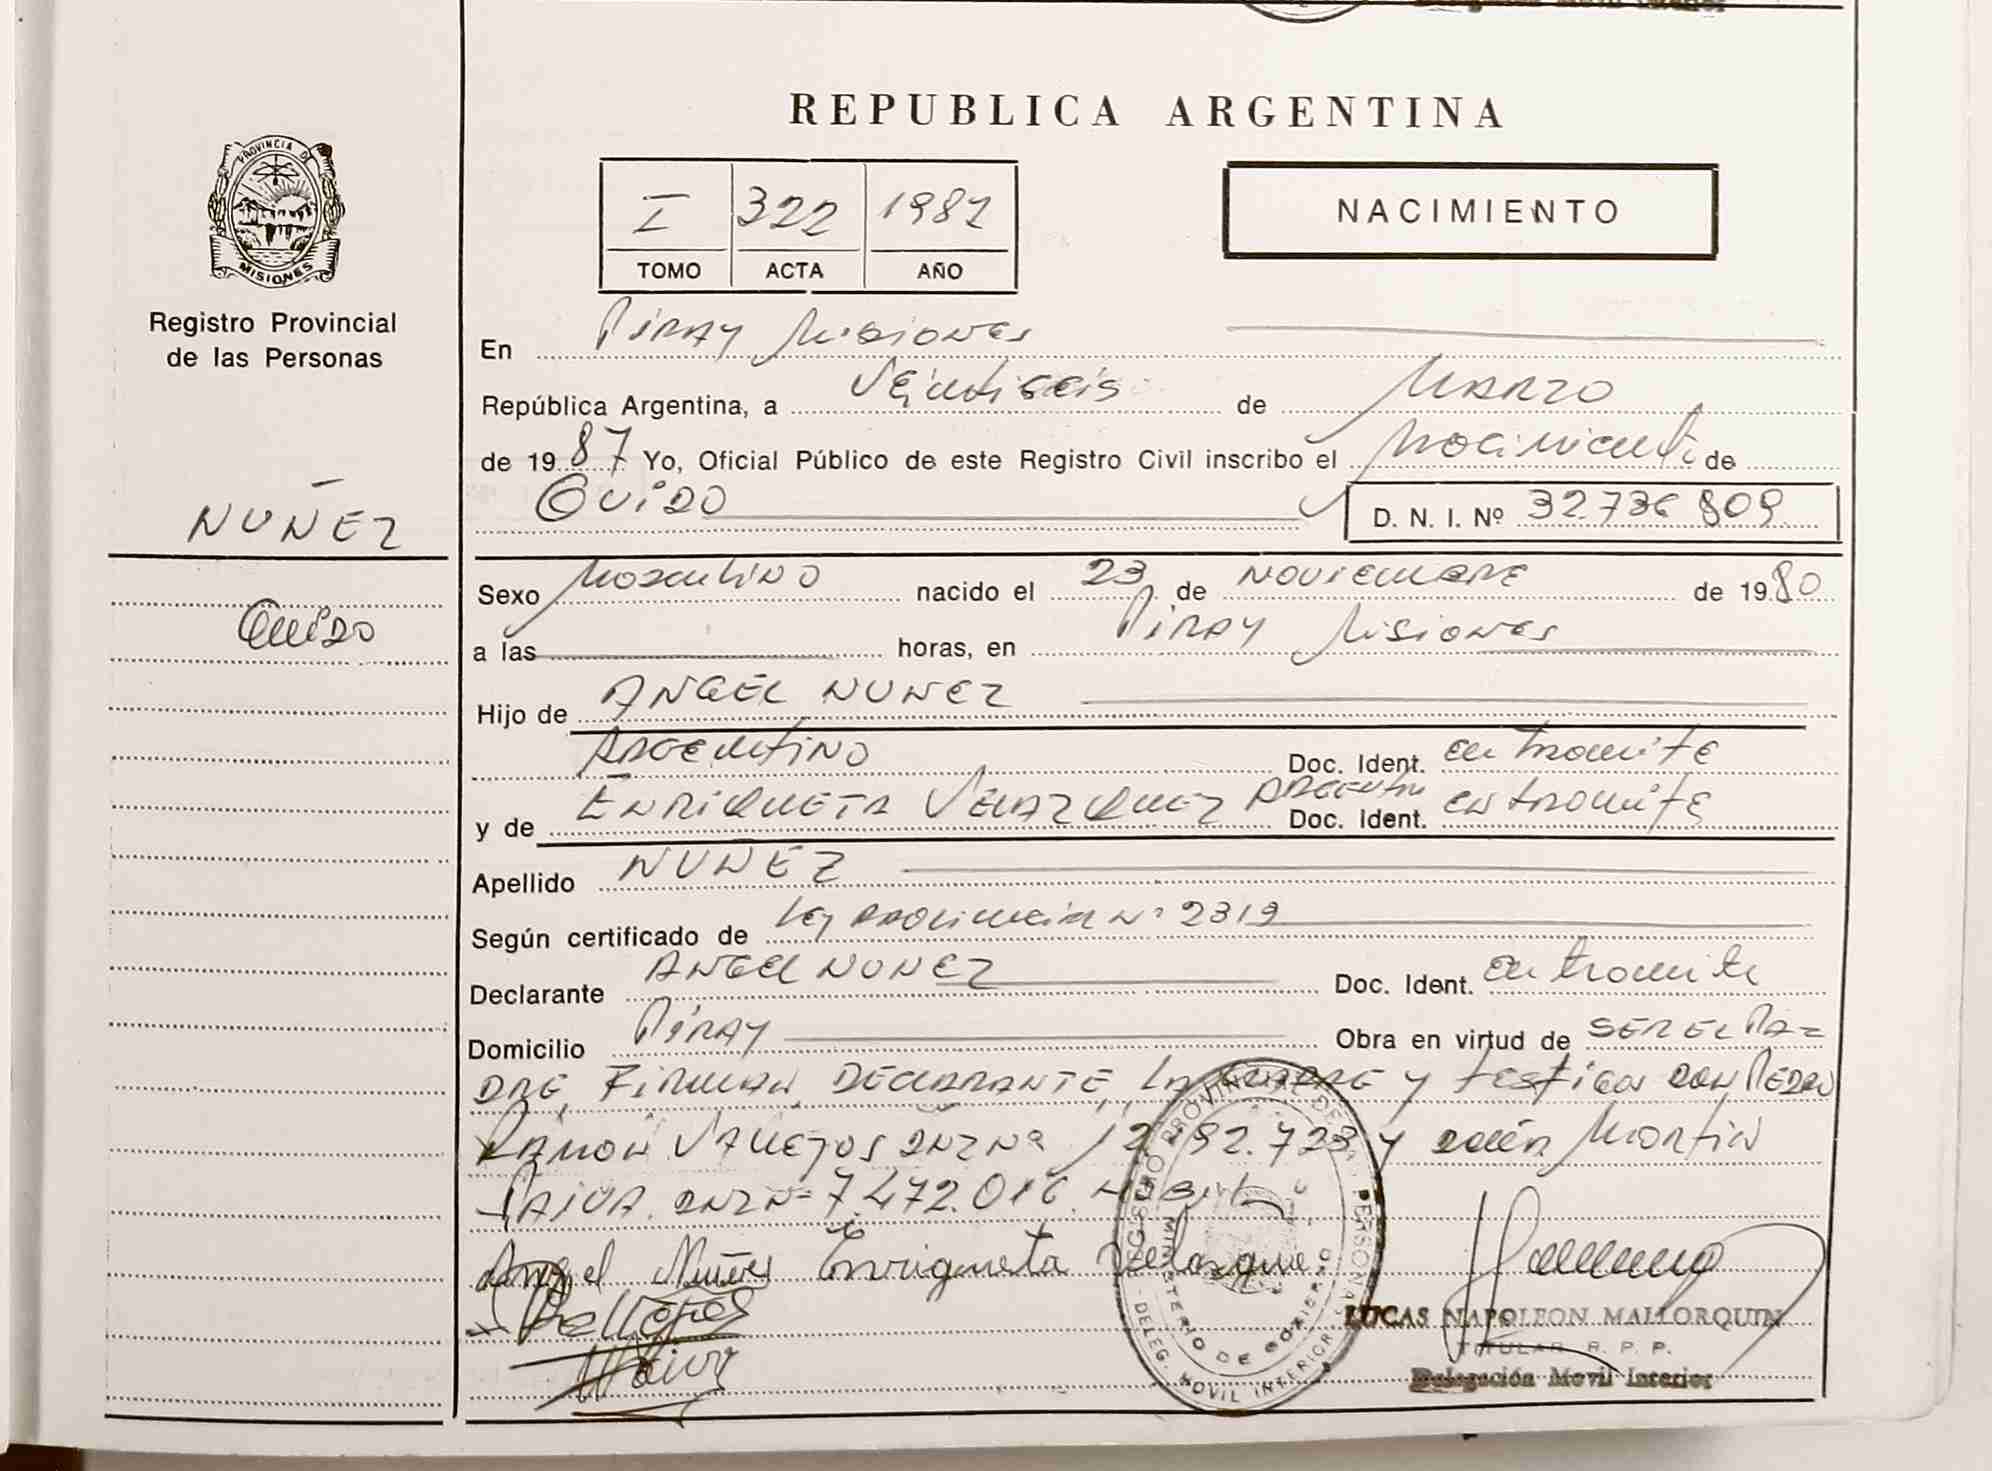 REPUBLICA ARGENTINA
PROVINCIA DE
MISIONES
Registro Provincial
de las Personas
I 322 1987
TOMO ACTA AÑO
NACIMIENTO
En Piray Misiones
República Argentina, a Veintiseis de Marzo
de 1987 Yo, Oficial Público de este Registro Civil inscribo el Nacimiento de
GUIDO D. N. I. Nº 32.736.809
NUÑEZ
Guido
Sexo Masculino nacido el 23 de NOVIEMBRE de 1980
a las horas, en Piray Misiones
Hijo de ANGEL NUÑEZ
ARGENTINO Doc. Ident. en tramite
y de ENRIQUETA VELAZQUEZ ARGENTINA Doc. Ident. en tramite
Apellido NUÑEZ
Según certificado de Ley Provincial Nº 2319
Declarante ANGEL NUÑEZ Doc. Ident. en tramite
Domicilio Piray Obra en virtud de SER EL PA-
DRE, FIRMAN DECLARANTE, LA MADRE y testigos DON PEDRO
RAMON VALLEJOS DNI Nº 12.292.723 y Martin
PAIVA DNI Nº 7.472.016
Angel Nuñes Enriqueta Velasque
LUCAS NAPOLEON MALLORQUIN
TITULAR R. P. P.
Delegación Movil Interior
REGISTRO PROVINCIAL DE PERSONAS
MINISTERIO DE GOBIERNO
DELEG. MOVIL INTERIOR